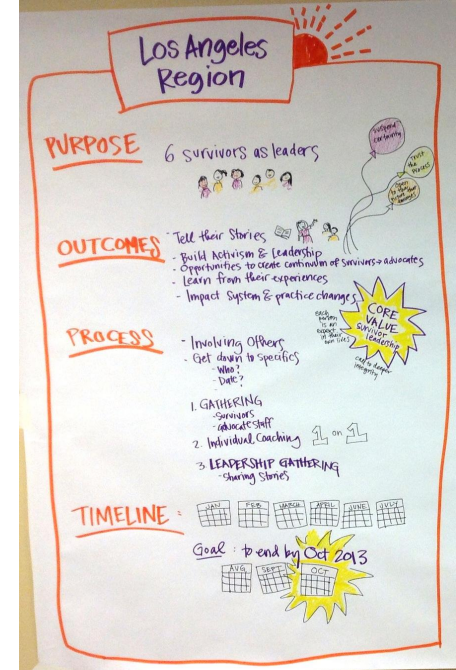 Los Angeles
Region
PURPOSE
6 survivors as leaders
suspend
certainty
Trust
the
Process
open
to
OUTCOMES
- Tell their Stories
- Build Activism & Leadership
- Opportunities to create continuum of survivors → advocates
- Learn from their experiences
- Impact System & practice changes
each
person
is an
expert
in their
own lives
CORE
VALUE
survivor
leadership
call to deeper
integrity
PROCESS
- Involving Others
- Get down to specifics
- Who?
- Date?
1. GATHERING
- Survivors
- advocate staff
2. Individual Coaching 1 on 1
3. LEADERSHIP GATHERING
- Sharing Stories
TIMELINE:
JAN FEB MARCH APRIL JUNE JULY
Goal: to end by Oct 2013
AUG SEPT OCT